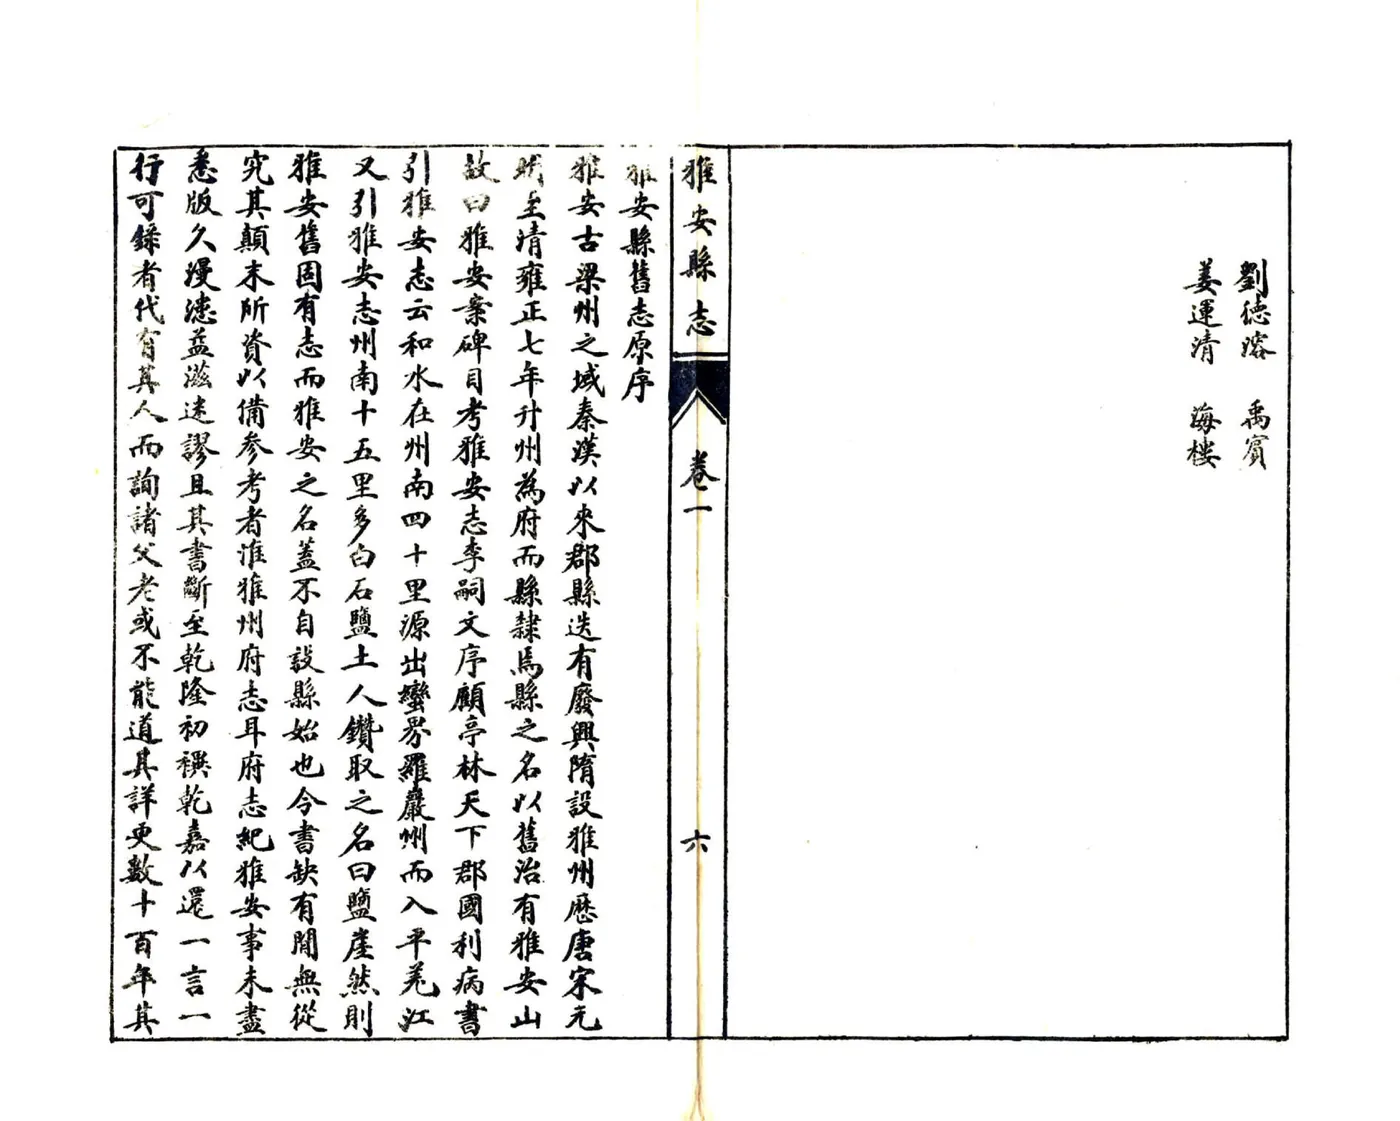 劉德溶　禹賓
姜運清　海楼
雅安縣志　卷一　六
雅安縣舊志原序
雅安古梁州之域秦漢以來郡縣迭有廢興隋設雅州歷唐宋元
明至清雍正七年升州為府而縣隸焉縣之名以舊治有雅安山
故曰雅安案碑目考雅安志李嗣文序顧亭林天下郡國利病書
引雅安志云和水在州南四十里源出蠻界羅巖州而入平羌江
又引雅安志州南十五里多白石鹽土人鑽取之名曰鹽崖然則
雅安舊固有志而雅安之名蓋不自設縣始也今書缺有間無從
究其顛末所資以備參考者淮雅州府志耳府志紀雅安事未盡
悉版久漫漶益滋迷謬且其書斷至乾隆初禩乾嘉以還一言一
行可錄者代有其人而詢諸父老或不能道其詳更數十百年其